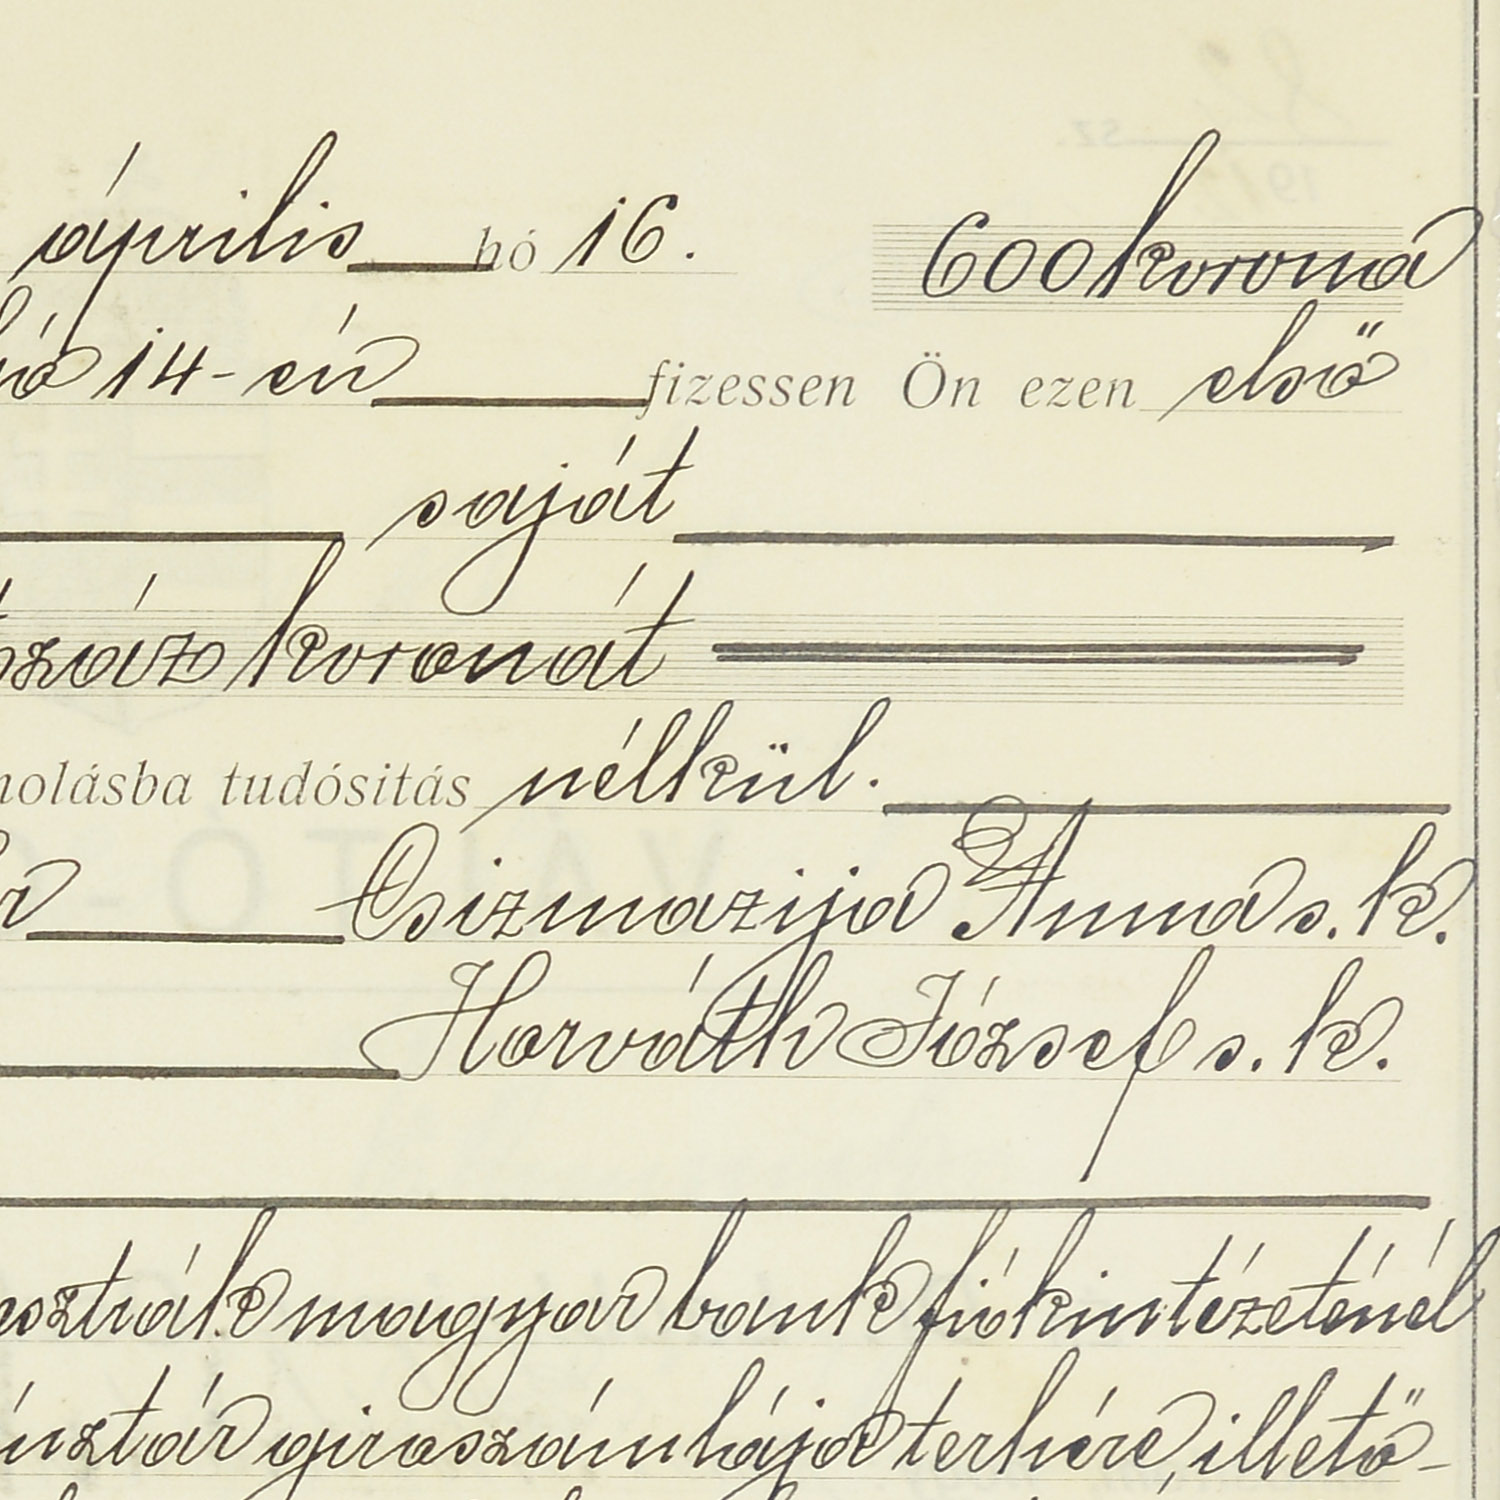 április hó 16. 600 korona
hó 14-én fizessen Ön ezen első
saját
száz koronát
molásba tudósitás nélkül.
Csizmazija Anna s. k.
Horváth József s. k.
osztrák magyar bank fiókintézeténél
pénztár girószámlája terhére, illető-